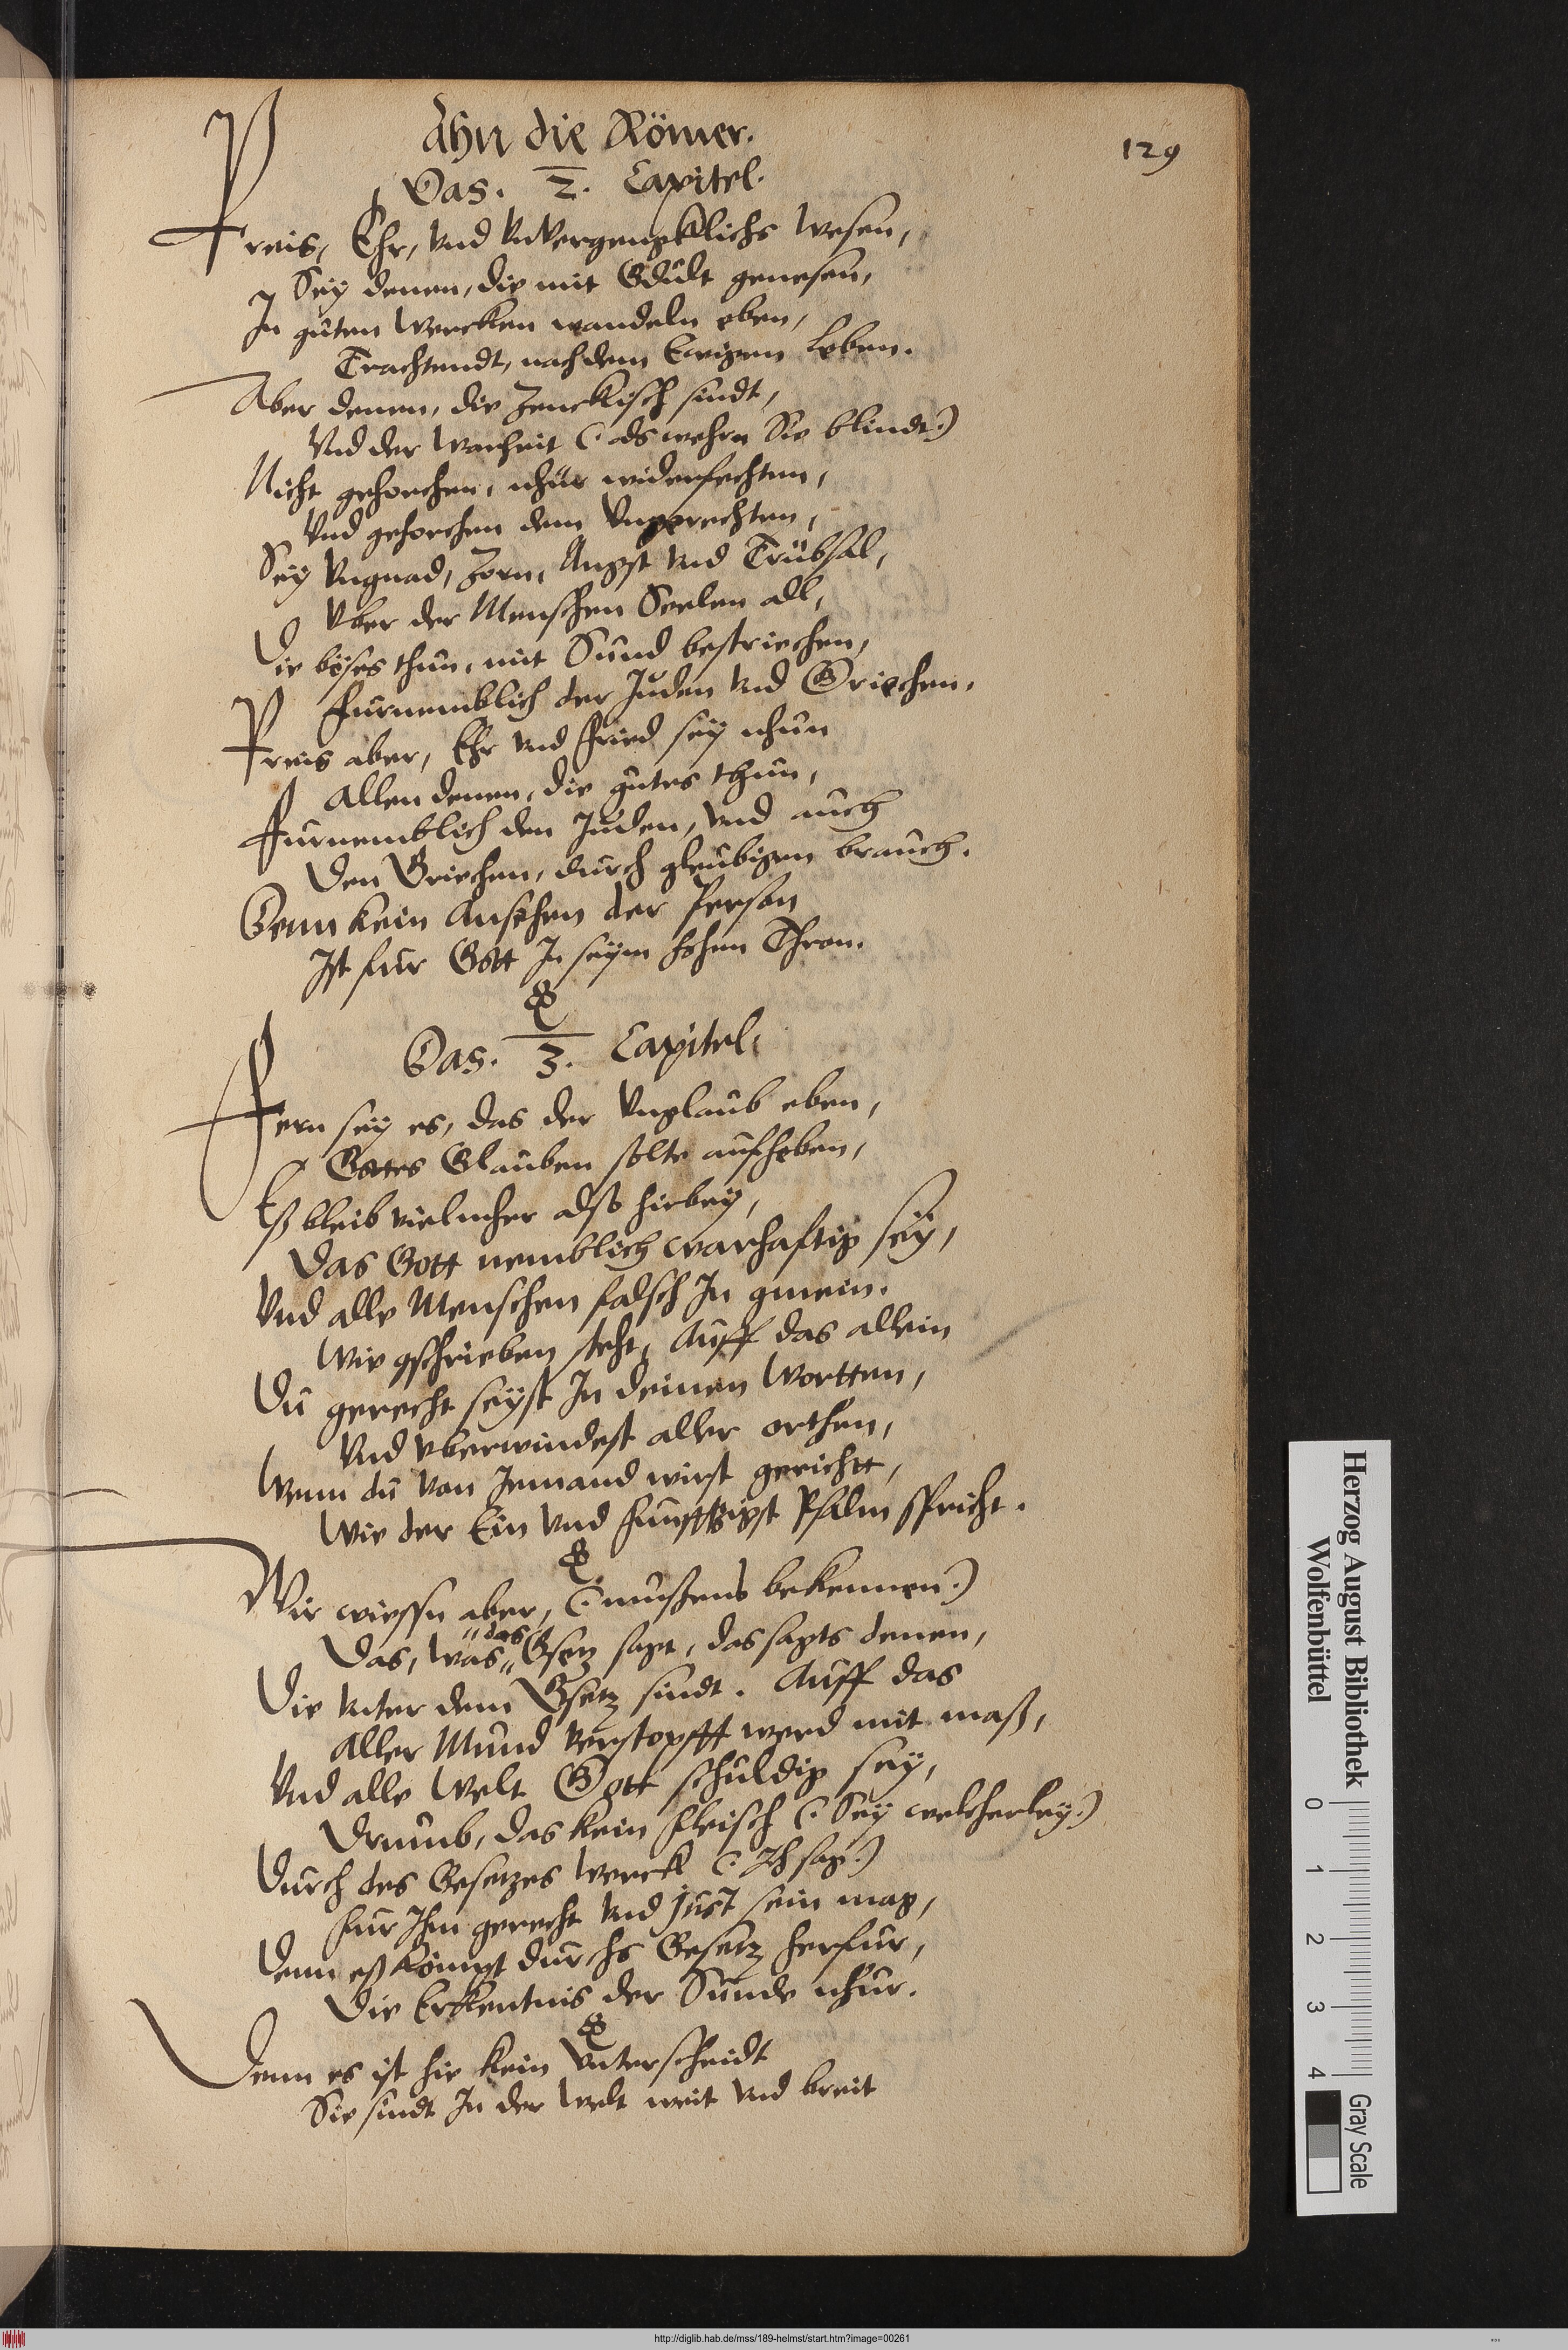 Ahn die Römer.
129
Das. 2. Capitel.
Preis, Ehr, vnd vnvergengklichs wesen,
Sey denen, die mit Gdult genesen,
In guten Wercken wandeln eben,
Trachtendt, nach dem Ewigen leben.
Aber denen, die Zenckisch sindt,
Vnd der Warheit (: als wehrn Sie blindt:)
Nicht gehorchen, nhur widerfechten,
Vnd gehorchen dem Vngerechten,
Sey Vngnad, Zorn, Angst vnd Trübsal,
Vber der Menschen Seelen all,
Die böses thun, mit Sünd bestriechen,
Furnemblich der Juden vnd Griechen.
Preis aber, Ehr vnd Fried sey nhun
Allen denen, die gutes thun,
Furnemblich den Juden, vnd auch
Den Griechen, durch gleubigen brauch.
Denn kein Ansehen der Person
Ist fur Gott In seym hohen Thron.
Das. 3. Capitel.
Fern sey es, das der Vnglaub eben,
Gottes Glauben solte auffheben,
Eß bleib vielmher also hirbey,
Das Gott nemblich warhaftig sey,
Vnd alle Menschen falsch In gmein.
Wie gschrieben steht, Auff das allein
Du gerecht seyst In deinen Wortten,
Vnd vberwindest aller orthen,
Wenn du von Jemand wirst gerichtt,
Wie der Ein vnd Funfftzigst Psalm spricht.
Wir wiessn aber, (: mußens bekennen:)
Das, was das Gsetz sagt, das sagts denen,
Die vnter dem Gsetz sindt. Auff das
Aller Mund verstopfft werd mit maß,
Vnd alle Welt Gott schuldig sey,
Drumb, das kein Fleisch (: Sey welcherley:)
Durch des Gesetzes Werck (: Ich sag:)
Fur Ihm gerecht vnd just sein mag,
Denn eß kömpt durchs Gesetz herfur,
Die Erkentnis der Sünde nhur.
Denn es ist hie kein Vnterscheidt
Sie sindt In der Welt weit vnd breit
Herzog August Bibliothek
Wolfenbüttel
0 1 2 3 4
Gray Scale
http://diglib.hab.de/mss/189-helmst/start.htm?image=00261